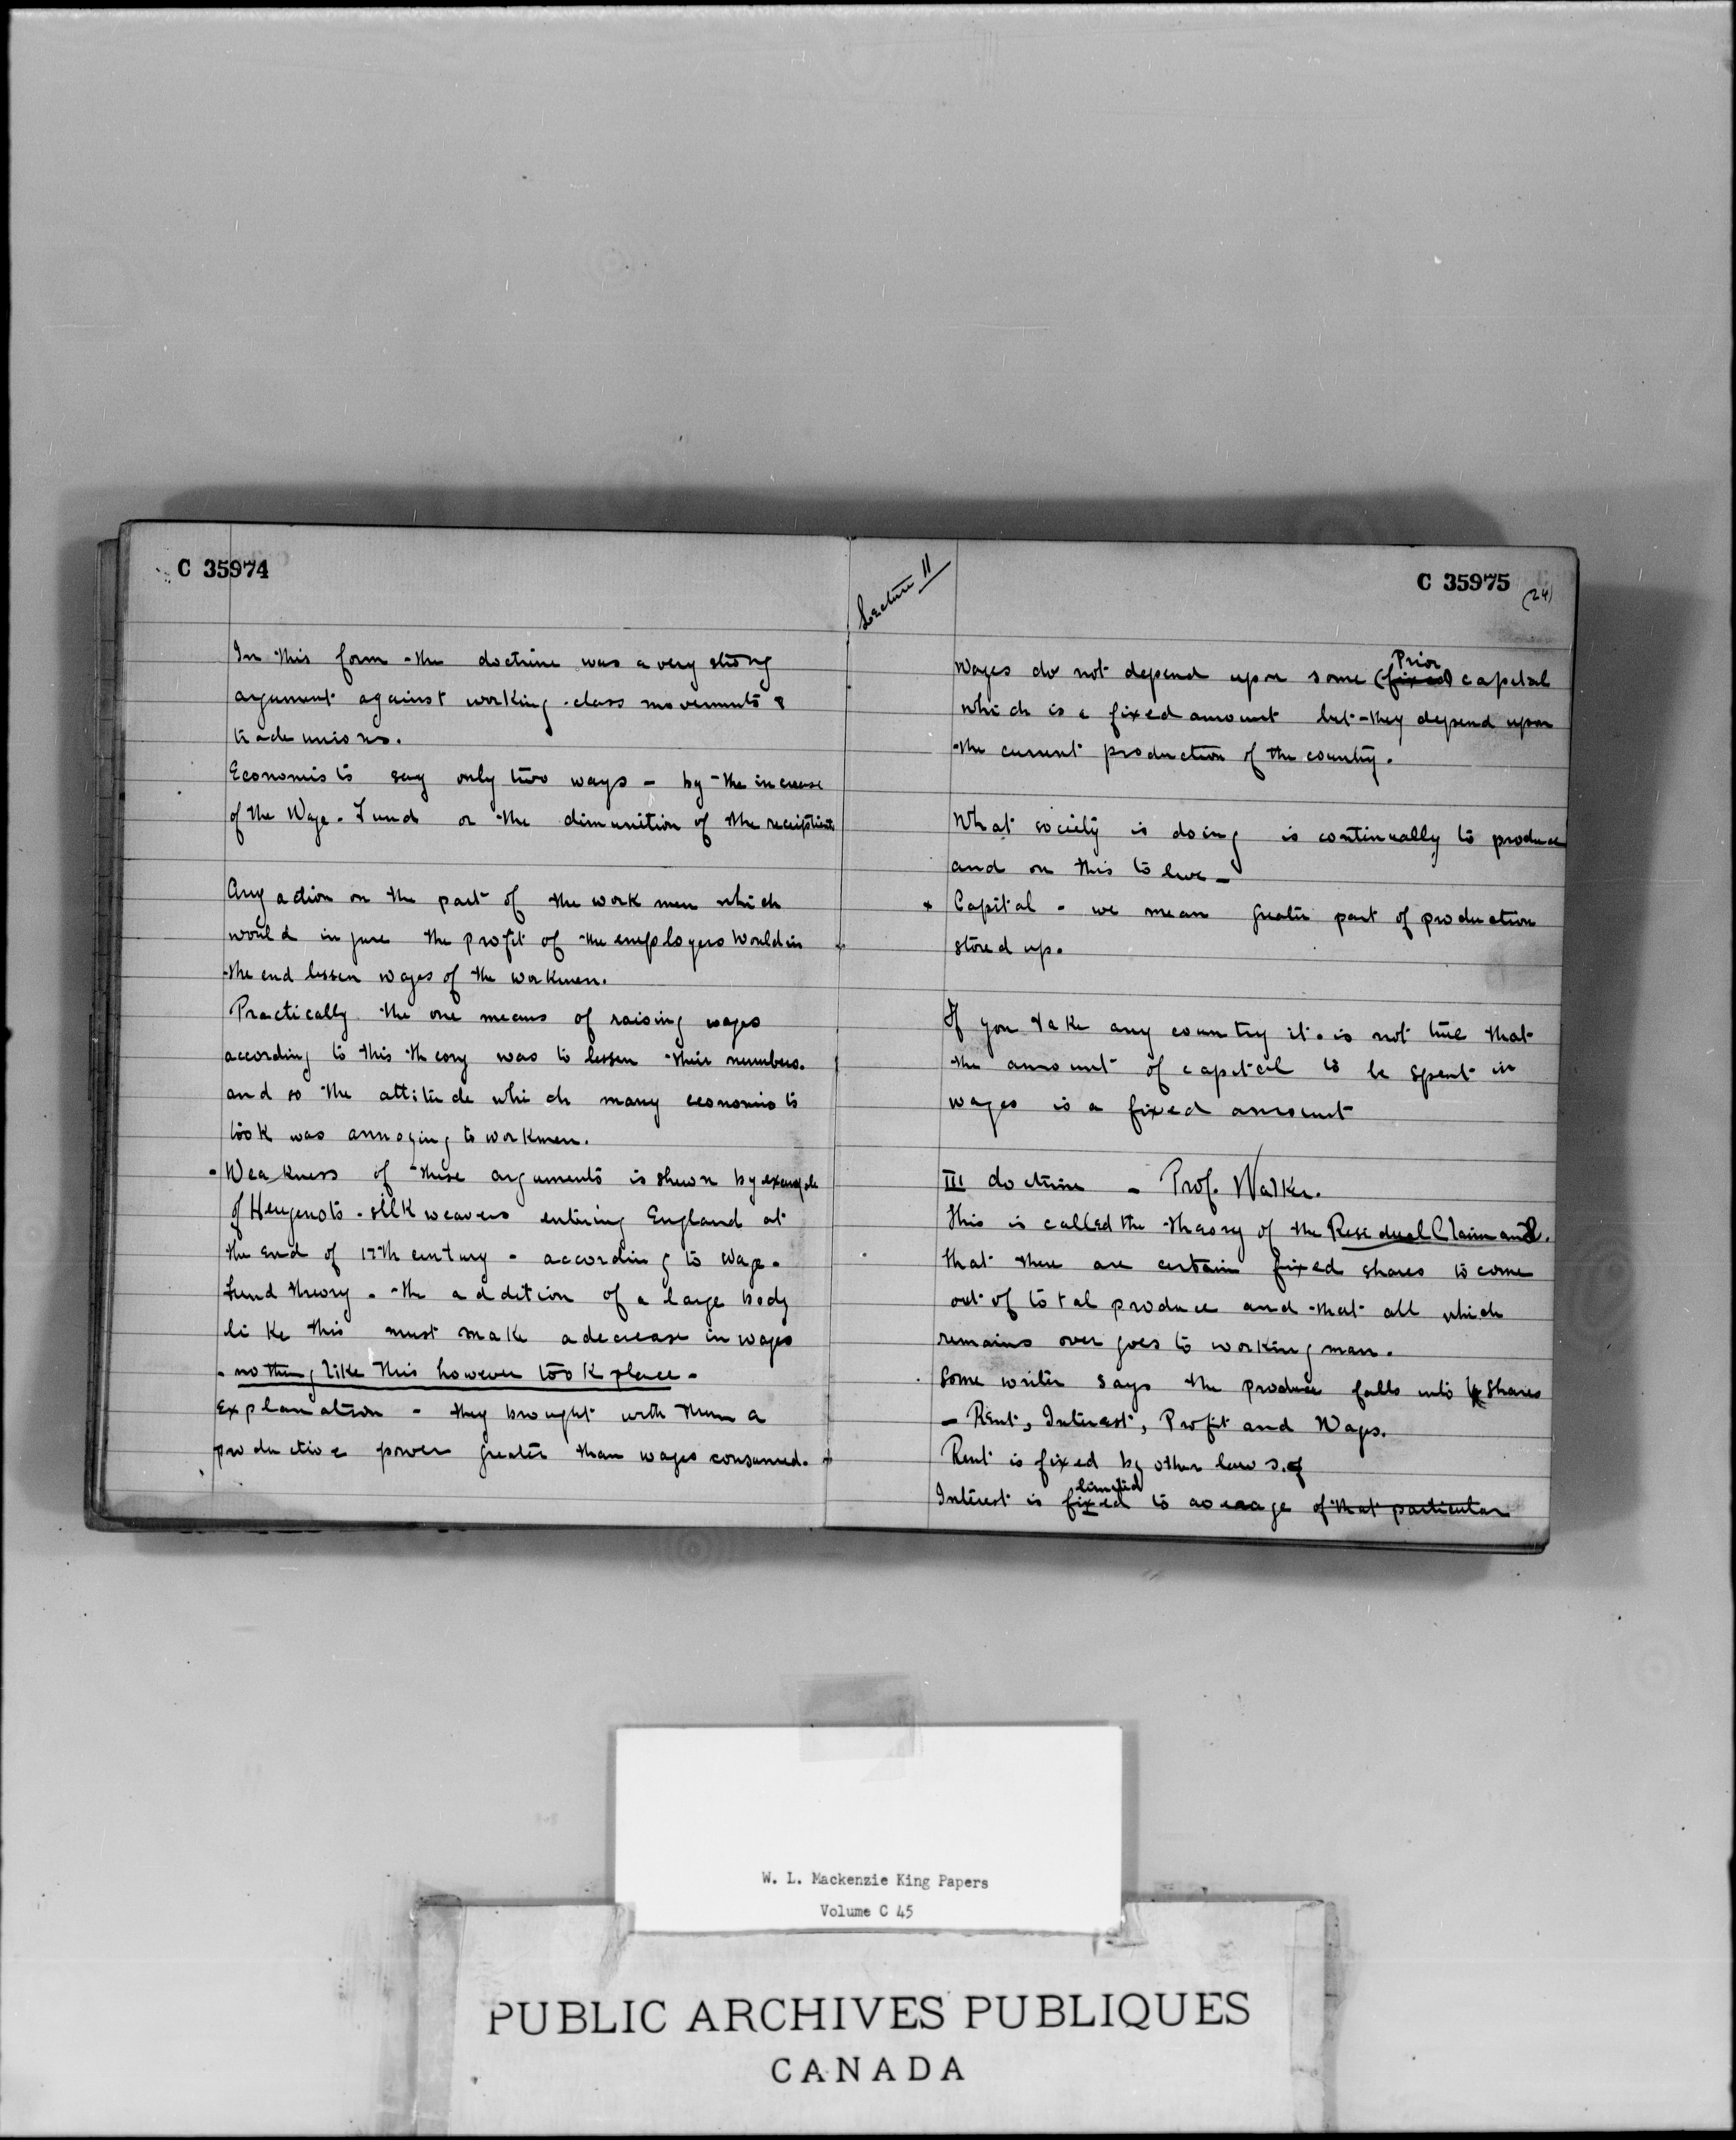 C 35974
In this form the doctrine was a very strong
argument against working-class movements &
trade unions.
Economists say only two ways - by the increase
of the Wage-Fund or the dimunition of the recipients
Any action on the part of the workmen which
would injure the profit of the employers would in
the end lessen wages of the workmen.
Practically the one means of raising wages
according to this theory was to lessen their numbers.
and so the attitude which many economists
took was annoying to workmen.
- Weakness of these arguments is shewn by example
of Heugenots - silk weavers entering England at
the end of 17th century - according to wage-
fund theory - the addition of a large body
like this must make a decrease in wages
- nothing like this however took place -
Explanation - they brought with them a
productive power greater than wages consumed.
Lecture II
C 35975
(24)
Prior
Wages do not depend upon some (fixed) capital
which is a fixed amount but they depend upon
the current production of the country.
What society is doing is continually to produce
and on this to live -
+ Capital - we mean greater part of production
stored up.
If you take any country it is not true that
the amount of capital to be spent in
wages is a fixed amount
III doctrine - Prof. Walker.
This is called the theory of the Residual Claimant.
that there are certain fixed shares to come
out of total produce and that all which
remains over goes to working man.
Some writer says the produce falls into 4 shares
- Rent, Interest, Profit and Wages.
Rent is fixed by other laws. of
limited
Interest is fixed to average of that particular
W. L. Mackenzie King Papers
Volume C 45
PUBLIC ARCHIVES PUBLIQUES
CANADA